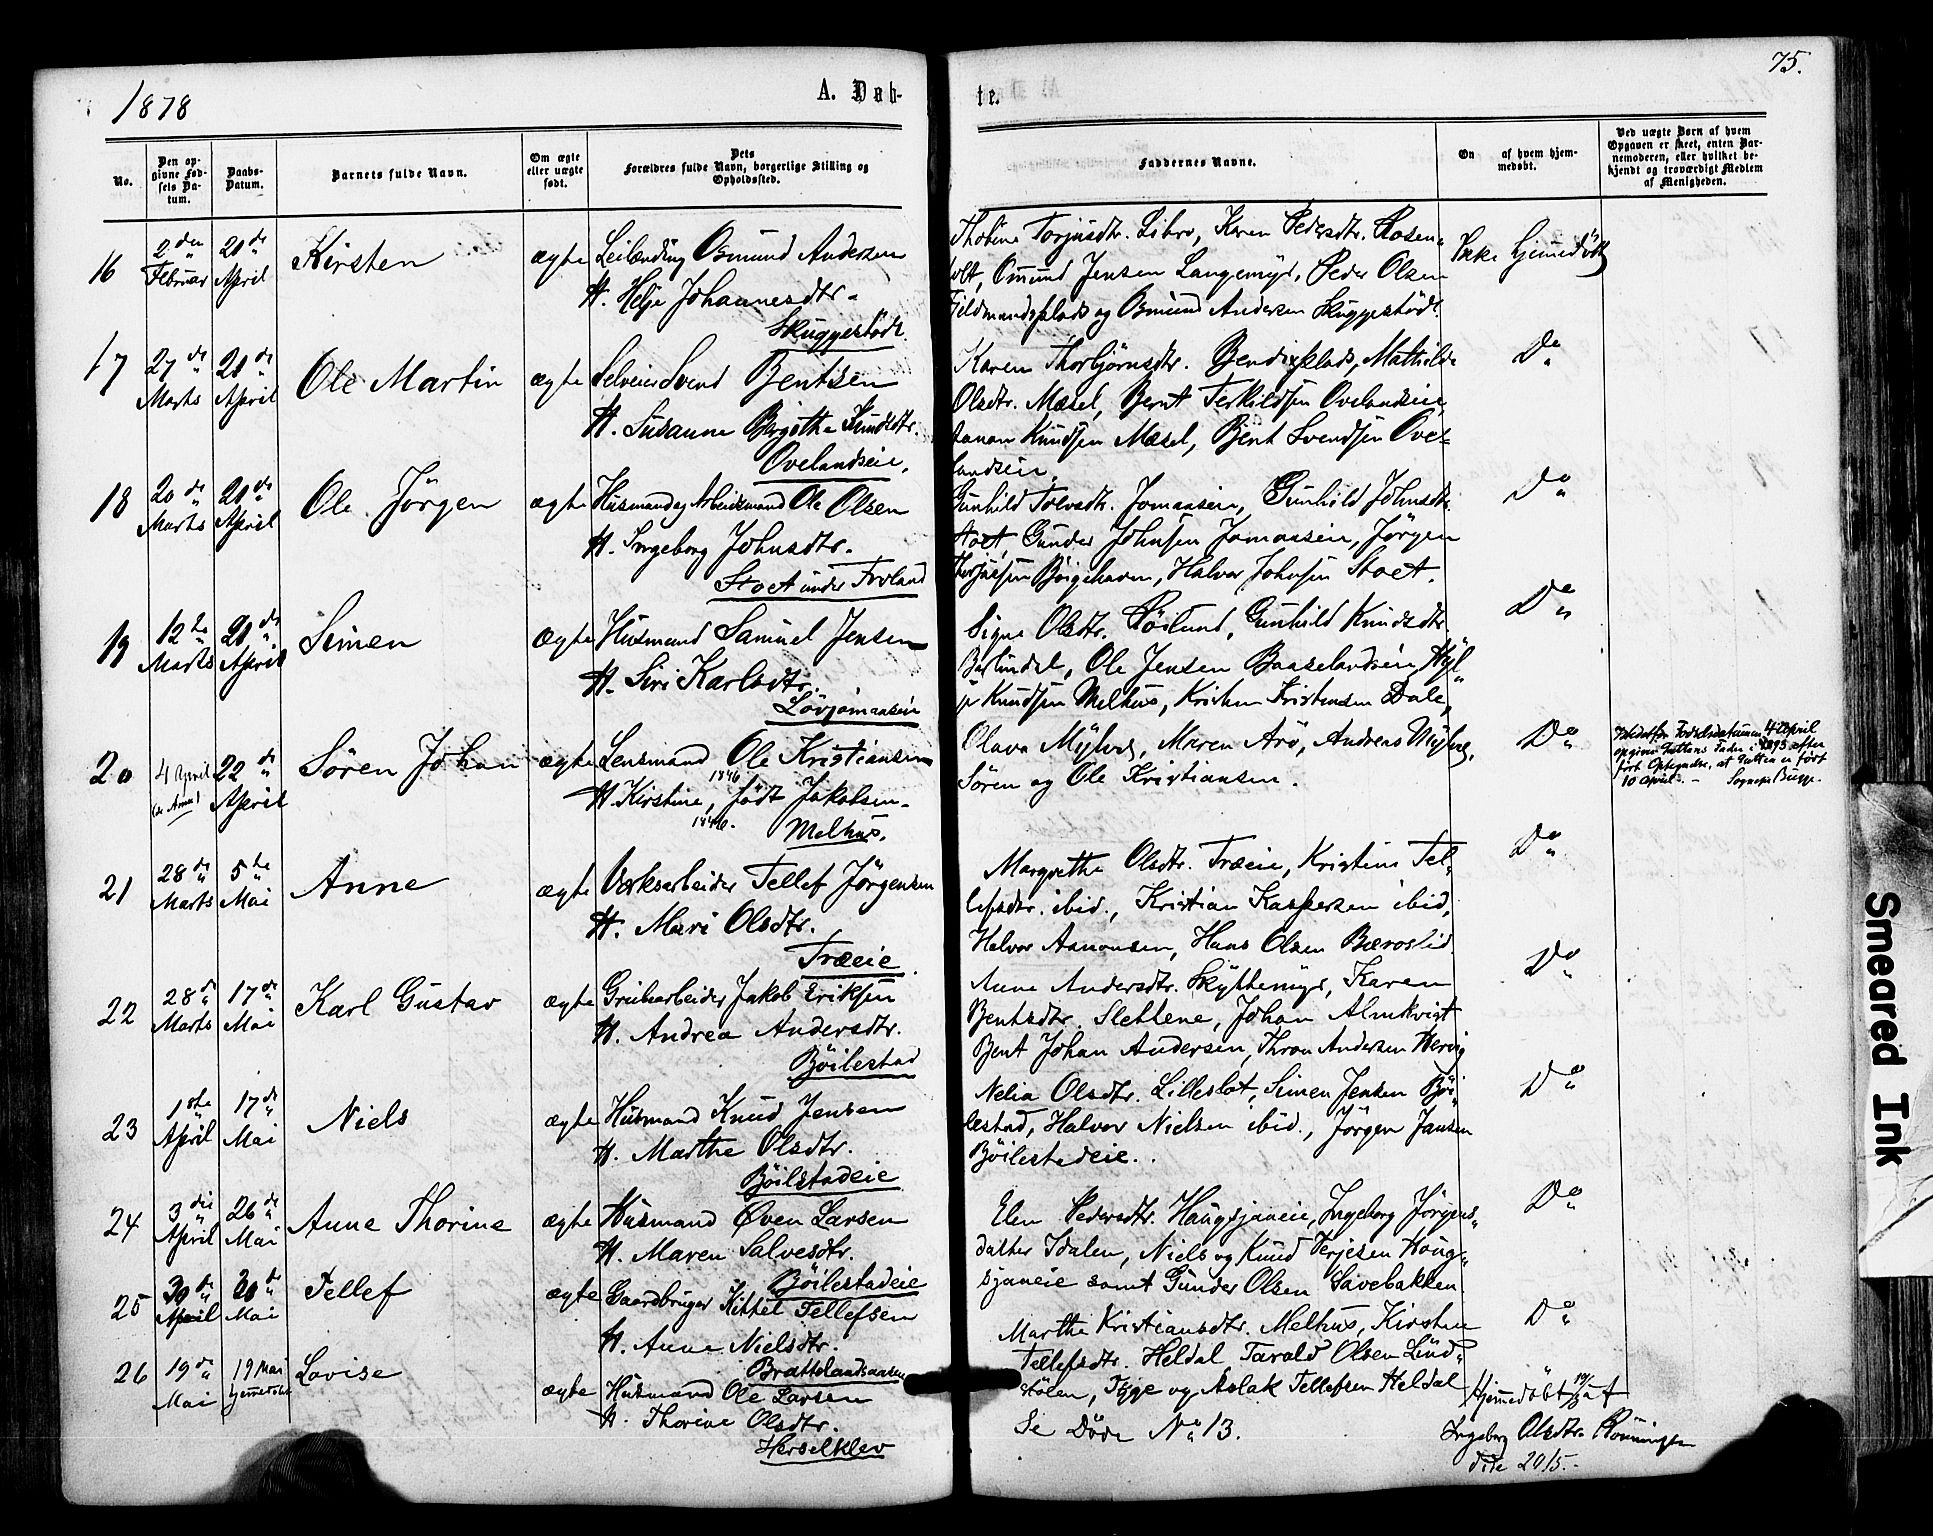 1878
A. Døb-
te.
75.
No.
Den opgivne Fødsels Datum.
Daabs-Datum.
Barnets fulde Navn.
Om ægte eller uægte født.
Dets Forældres fulde Navn, borgerlige Stilling og Opholdssted.
Faddernes Navne.
On af hvem hjemmedøbt.
Ved uægte Børn af hvem Opgaven er skeet, enten Barnemoderen, eller hvilket bekjendt og troværdigt Medlem af Menigheden.
16
2den Februar
21de April
Kirsten
ægte
Leilænding Osmund Andersen
H. Helje Johannesdtr.
Skuggestødt
Thobine Torjusdtr. Libro, Karen Pedersdtr. Rosen-
holt, Omund Jensen Langemyr, Peder Olsen
Fieldmandsplads og Osmund Andersen Skuggestødt.
Ikke hjemmedöbt
17
27de Marts
21de April
Ole Martin
ægte
Selveier Svend Bentsen
H. Susanne Birgithe Knudsdtr.
Ovelandseie.
Karen Thorbjörnsdtr. Bendixplads, Mathilde
Olsdtr. Mæsel, Bernt Terkildsen Ovelandseie
Aanon Knudsen Mæsel, Bent Svendsen Ove-
landseie
Do
18
20de Marts
21de April
Ole Jörgen
ægte
Husmand og Arbeidsmand Ole Olsen
H. Ingeborg Johnsdtr.
Stoet under Froland
Gunhild Tolvsdtr. Jomaaseie, Gunhild Johnsdtr.
Stoet, Gunder Johnsen Jomaaseie, Jörgen
Thorjussen Böigehaven, Halvor Johnsen Stoet.
Do
19
12te Marts
21de April
Simen
ægte
Husmand Samuel Jensen
H. Siri Karlsdtr.
Lövjomaaseie
Signe Olsdtr. Röilund, Gunhild Knudsdtr.
Barlindal, Ole Jensen Baaselandseie, Hyl-
je Knudsen Melhus, Kristen Kristensen Dale,
Do
20
4 April
22de April
Sören Johan
ægte
Lensmand Ole Kristiansen
1846
H. Kirstine, födt Jakobsen.
1846.
Melhus.
Olava Myhre, Maren Arö, Andreas Myhre,
Sören og Ole Kristiansen.
Do
Istedetfor Fødselsdatumen 4 April
opgiver Guttens Fader i 1893 efter
ført Optegnelse, at Gutten er født
10 April. - Sognepr Bugge.
21
28de Marts
5te Mai
Anne
ægte
Værksarbeider Tellef Jörgensen
H. Mari Olsdtr.
Træeie
Margrethe Olsdtr. Træeie, Kristine Tel-
lefsdtr. ibid., Kristian Kaspersen ibid,
Halvor Aanonsen, Hans Olsen Bæroslid.
Do
22
28de Marts
17de Mai
Karl Gustav
ægte
Grubearbeider Jakob Eriksen
H. Andrea Andersdtr.
Böilestad
Anne Andersdtr. Skyttemyr, Karen
Bentsdtr. Slettene, Johan Almkvist
Bent Johan Andersen, Thron Andersen Hervig
Do
23
1ste April
17de Mai
Niels
ægte
Husmand Knud Jensen
H. Marthe Olsdtr.
Böilstadeie
Nelia Olsdtr. Lilleslot, Simen Jensen Böi-
lestad, Halvor Nielsen ibid., Jörgen Jansen
Böilestadeie.
Do
24
3die April
26de Mai
Anne Thorine
ægte
Husmand Öven Larsen
H. Maren Salvesdtr.
Böilestadeie
Elen Pedersdtr. Haugsjaneie, Ingeborg Jörgens-
datter Idalen, Niels og Knud Terjesen Haug-
sjaneie samt Gunder Olsen Savebakken.
Do
25
30de April
30de Mai
Tellef
ægte
Gaardbruger Kittel Tellefsen
H. Anne Nielsdtr.
Brattelandsaasen
Marthe Kristiansdtr. Melhus, Kirsten
Tellefsdtr. Heldal, Tarald Olsen Lind-
stölen, Tyge og Aslak Tellefsen Heldal
Do
26
19de Mai
19 Mai hjemmedöbt
Lovise
ægte
Husmand Ole Larsen
H. Thorine Olsdtr.
Herselklev
Se Döde No 13.
Hjemmedöbt 19/5 af
Ingeborg Olsdtr. Rönningen
död 20/5.
Smeared Ink